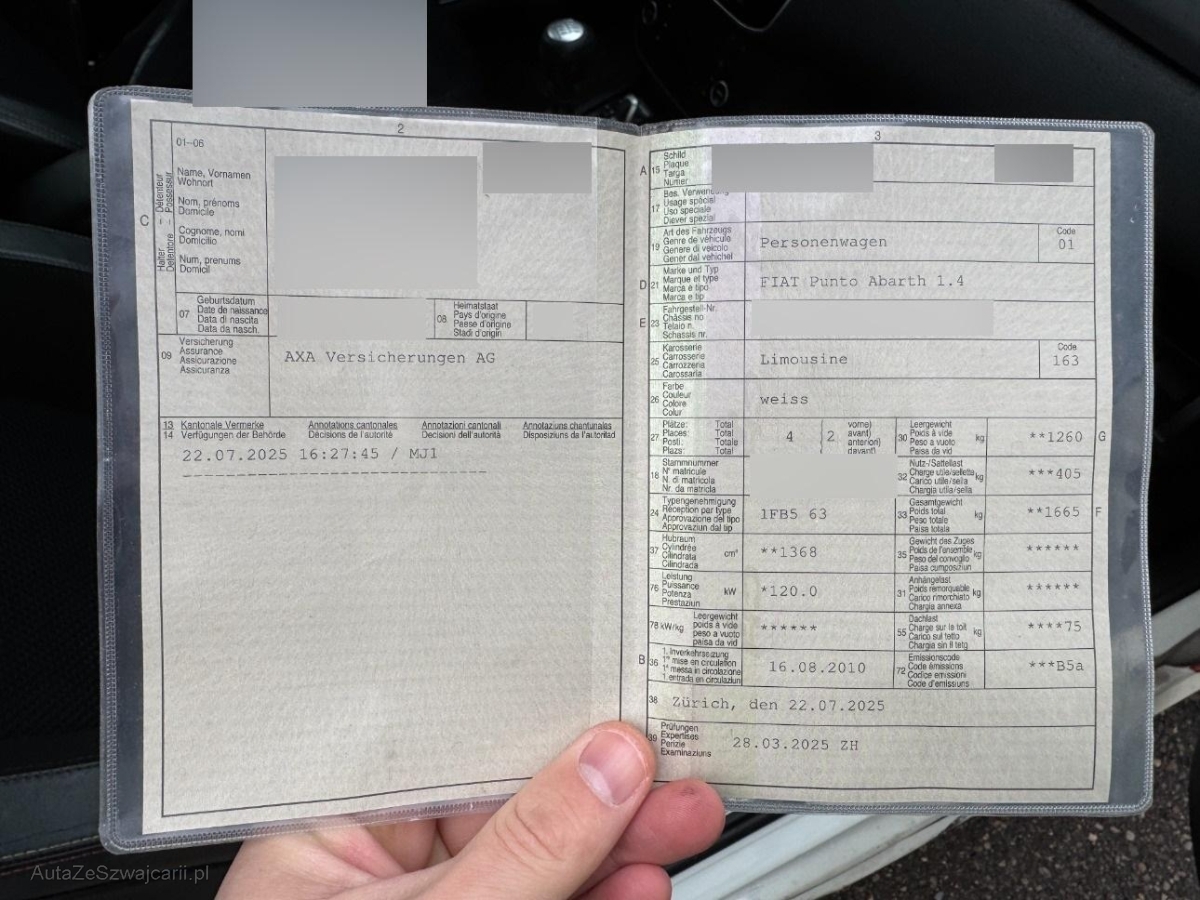 2
01–06
Halter – Détenteur
Detentore – Possessur
C
Name, Vornamen
Wohnort
Nom, prénoms
Domicile
Cognome, nomi
Domicilio
Num, prenums
Domicil
07
Geburtsdatum
Date de naissance
Data di nascita
Data da nasch.
08
Heimatstaat
Pays d'origine
Paese d'origine
Stadi d'origin
09
Versicherung
Assurance
Assicurazione
Assicuranza
AXA Versicherungen AG
13 Kantonale Vermerke Annotations cantonales Annotazioni cantonali Annotaziuns chantunalas
14 Verfügungen der Behörde Décisions de l'autorité Decisioni dell'autorità Disposiziuns da l'autoritad
22.07.2025 16:27:45 / MJ1
3
A 15
Schild
Plaque
Targa
Numer
17
Bes. Verwendung
Usage spécial
Uso speciale
Diever spezial
19
Art des Fahrzeugs
Genre de véhicule
Genere di veicolo
Gener dal vehichel
Personenwagen
Code
01
D 21
Marke und Typ
Marque et type
Marca e tipo
Marca e tip
FIAT Punto Abarth 1.4
E 23
Fahrgestell-Nr.
Châssis no
Telaio n.
Schassis nr.
25
Karosserie
Carrosserie
Carrozzeria
Carossaria
Limousine
Code
163
26
Farbe
Couleur
Colore
Colur
weiss
27
Plätze: Total
Places: Total
Posti: Totale
Plazs: Totale
4
2
vorne)
avant)
anteriori)
davant)
30
Leergewicht
Poids à vide
Peso a vuoto
Paisa da vid
kg
**1260
G
18
Stammnummer
N° matricule
N. di matricola
Nr. da matricla
32
Nutz-/Sattellast
Charge utile/sellette
Carico utile/sella
Chargia utila/sella
kg
***405
24
Typengenehmigung
Réception par type
Approvazione del tipo
Approvaziun dal tip
1FB5 63
33
Gesamtgewicht
Poids total
Peso totale
Paisa totala
kg
**1665
F
37
Hubraum
Cylindrée
Cilindrata
Cilindrada
cm³
**1368
35
Gewicht des Zuges
Poids de l'ensemble
Peso del convoglio
Paisa cumposiziun
kg
******
76
Leistung
Puissance
Potenza
Prestaziun
kW
*120.0
31
Anhängelast
Poids remorquable
Carico rimorchiato
Chargia annexa
kg
******
78 kW/kg
Leergewicht
poids à vide
peso a vuoto
paisa da vid
******
55
Dachlast
Charge sur le toit
Carico sul tetto
Chargia sin il tetg
kg
****75
B 36
1. Inverkehrsetzung
1re mise en circulation
1a messa in circolazione
1. entrada en circulaziun
16.08.2010
72
Emissionscode
Code émissions
Codice emissioni
Code d'emissiuns
***B5a
38
Zürich, den 22.07.2025
39
Prüfungen
Expertises
Perizie
Examinaziuns
28.03.2025 ZH
AutaZeSzwajcarii.pl